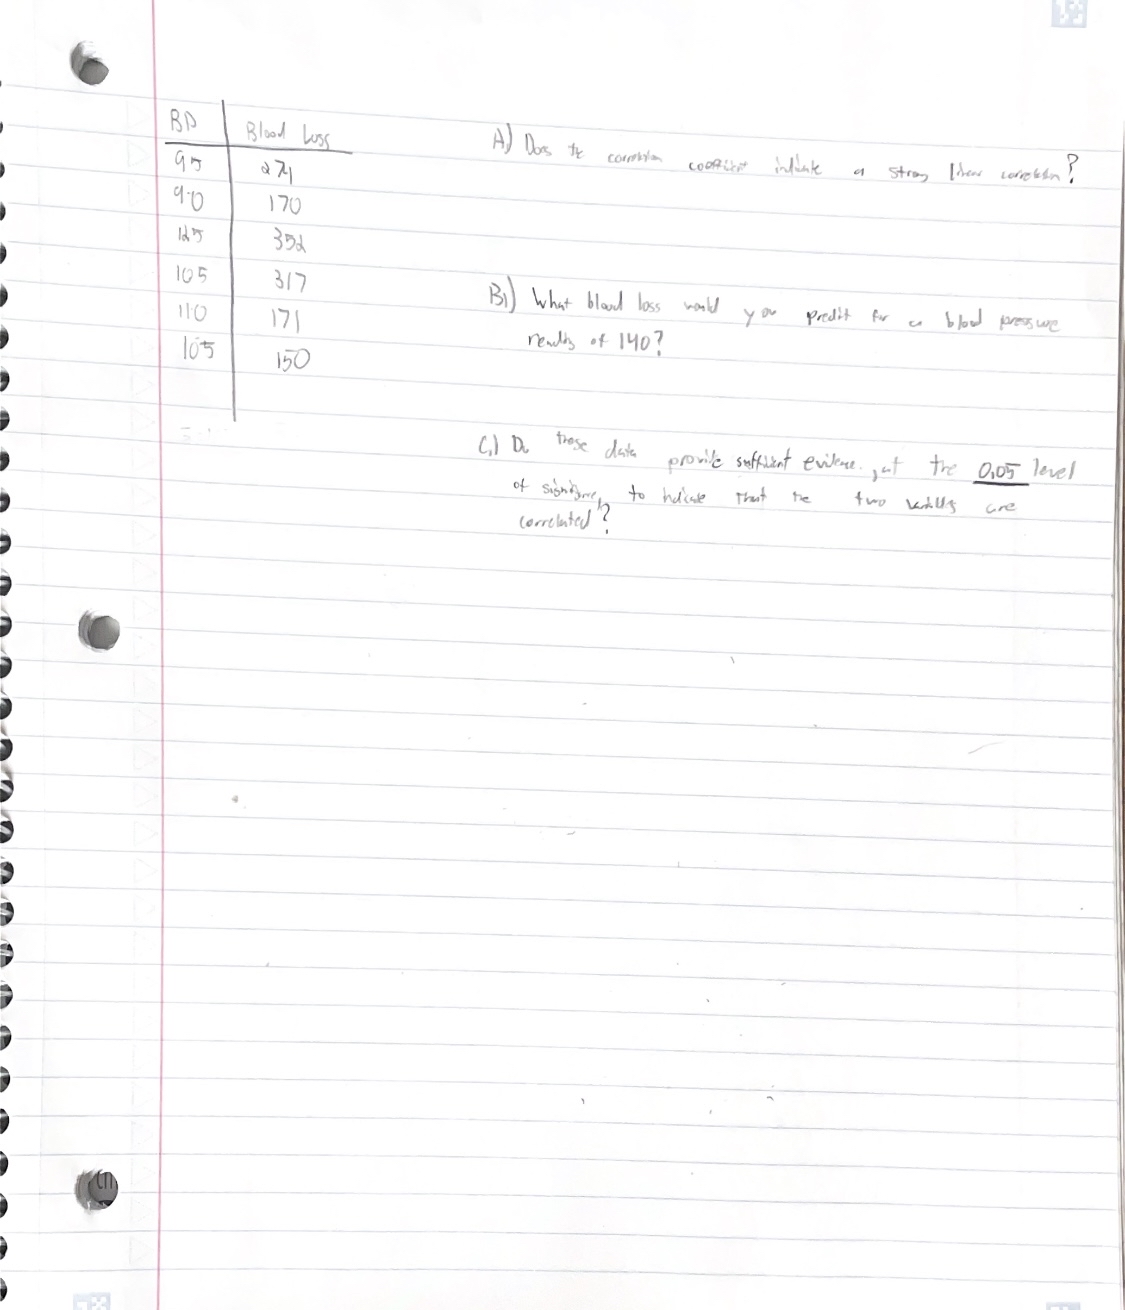 BP Blood Loss
95 271
90 170
125 352
105 317
110 171
105 150
A) Does the correlation coefficient indicate a strong linear correlation?
B) What blood loss would you predit for a blood pressure
results of 140?
C.) Do these data provide sufficient evidence, at the 0.05 level
of signifigance, to indicate that the two variables are
correlated?